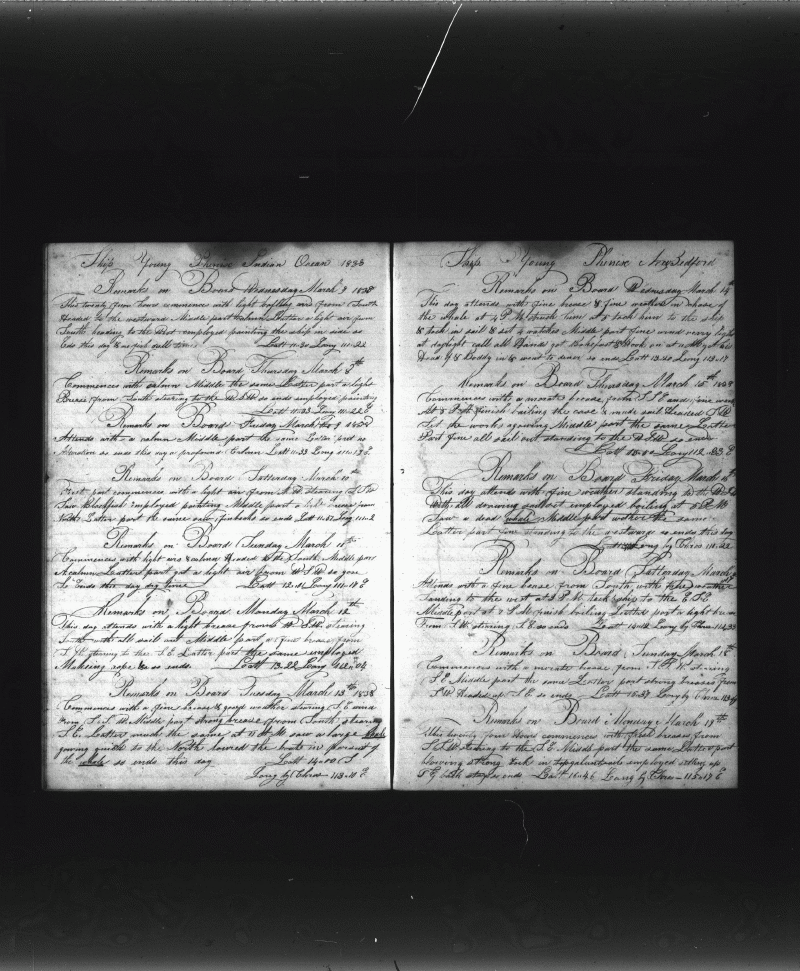 Ship Young Phenix Indian Ocean 1838
Remarks on Board Wednesday March 7 1838
This twenty four hours commences with light and from South
Headed to the westward Middle part Latter a light air from
South heading to the West employed painting the ship in side so
Ends this day Latt 11-30 Long 111-22
Remarks on Board Thursday March 8th
Commences with calm Middle the same Latter part a light
Breese from South stearing to the W.S.W so ends employed painting
Latt 11-33 Long 111-22 E
Remarks on Board Friday March 9 1838
Attends with a calm Middle part the same Latter part no
Alteration so ends this day profound Calm Latt 11-33 Long 111-13 E
Remarks on Board Satterday March 10
First part commences with a light air from stearing
Saw Blackfish employed painting Middle part a light breese from
North Latter part the same saw finbacks so ends Latt 11-57 Long 111-2
Remarks on Board Sunday March 11th
Commences with light airs & calms Headed to the South Middle part
A calm Latter part got a light air from W.S.W so you
Se Ends this day Latt 12-21 Long 111-17 E
Remarks on Board Monday March 12
This day attends with a light breese from W.S.W stearing
South with all sail out Middle part a fine breese from
S.W. stearing to the S.E. Latter part the same employed
Makeing rope & so ends Latt 13-22 Long 112-04
Remarks on Board Tuesday March 13th 1838
Commences with a fine breese & good weather stearing S.E wind
from S.S.W. Middle part strong breese from South stearing
S.E. Latter much the same at 11 A.M saw a large whale
going quick to the North lowered the boats in persuit of
the whale so ends this day Latt 14-10 S
Long by Chro - 113-11 E
Ship Young Phenix New Bedford
Remarks on Board Wednesday March 14th
This day attends with fine breese & fine weather in chase of
the whale at 4 P.M struck him at 5 took him to the ship
& took in sail & set watches Middle part fine wind
at daylight call all Hands got the
Head & Boddy in & went to so ends Latt 13-40 Long 113-17
Remarks on Board Thursday March 15th 1838
Commences with a morate breese from S.S.E and fine
At 8 P.M. finish bailing the case & made sail Headed S.W
Set the works agowing Middle part the same Latter
Part fine all sail out standing to the W.S.W so ends
Latt Long 112-53 E
Remarks on Board Friday March 16
This day attends with fine weather standing to the
With all drawing sailsout employed boiling at 5 P.M
Saw a dead whale Middle part wether the same
Latter part fine standing to the westward so ends this day
Long by Chro 111-22
Remarks on Board Satterday March 17
Attends with a fine breese from South with fine weather
Standing to the west at 3 P.M. tack ship to the E.S.E
Middle part at 7 P.M finish boiling Latter part a light breese
From S.W. stearing S.E so ends Latt 14-12 Long by Chro 111-33
Remarks on Board Sunday March 18th
Commences with a morate breese from S.S.W stearing
S.E Middle part the same Latter part strong breases from
S.W Headed up S.E. so ends Latt 15-37 Long by Chro 113-4
Remarks on Board Monday March 19th
This twenty four Hours commences with fresh breese from
S.S.W stearing to the S.E. Middle part the same Latter part
blowing strong took in topgallantsails employed setting up
so ends Latt 16-46 Long by Chro - 115-17 E